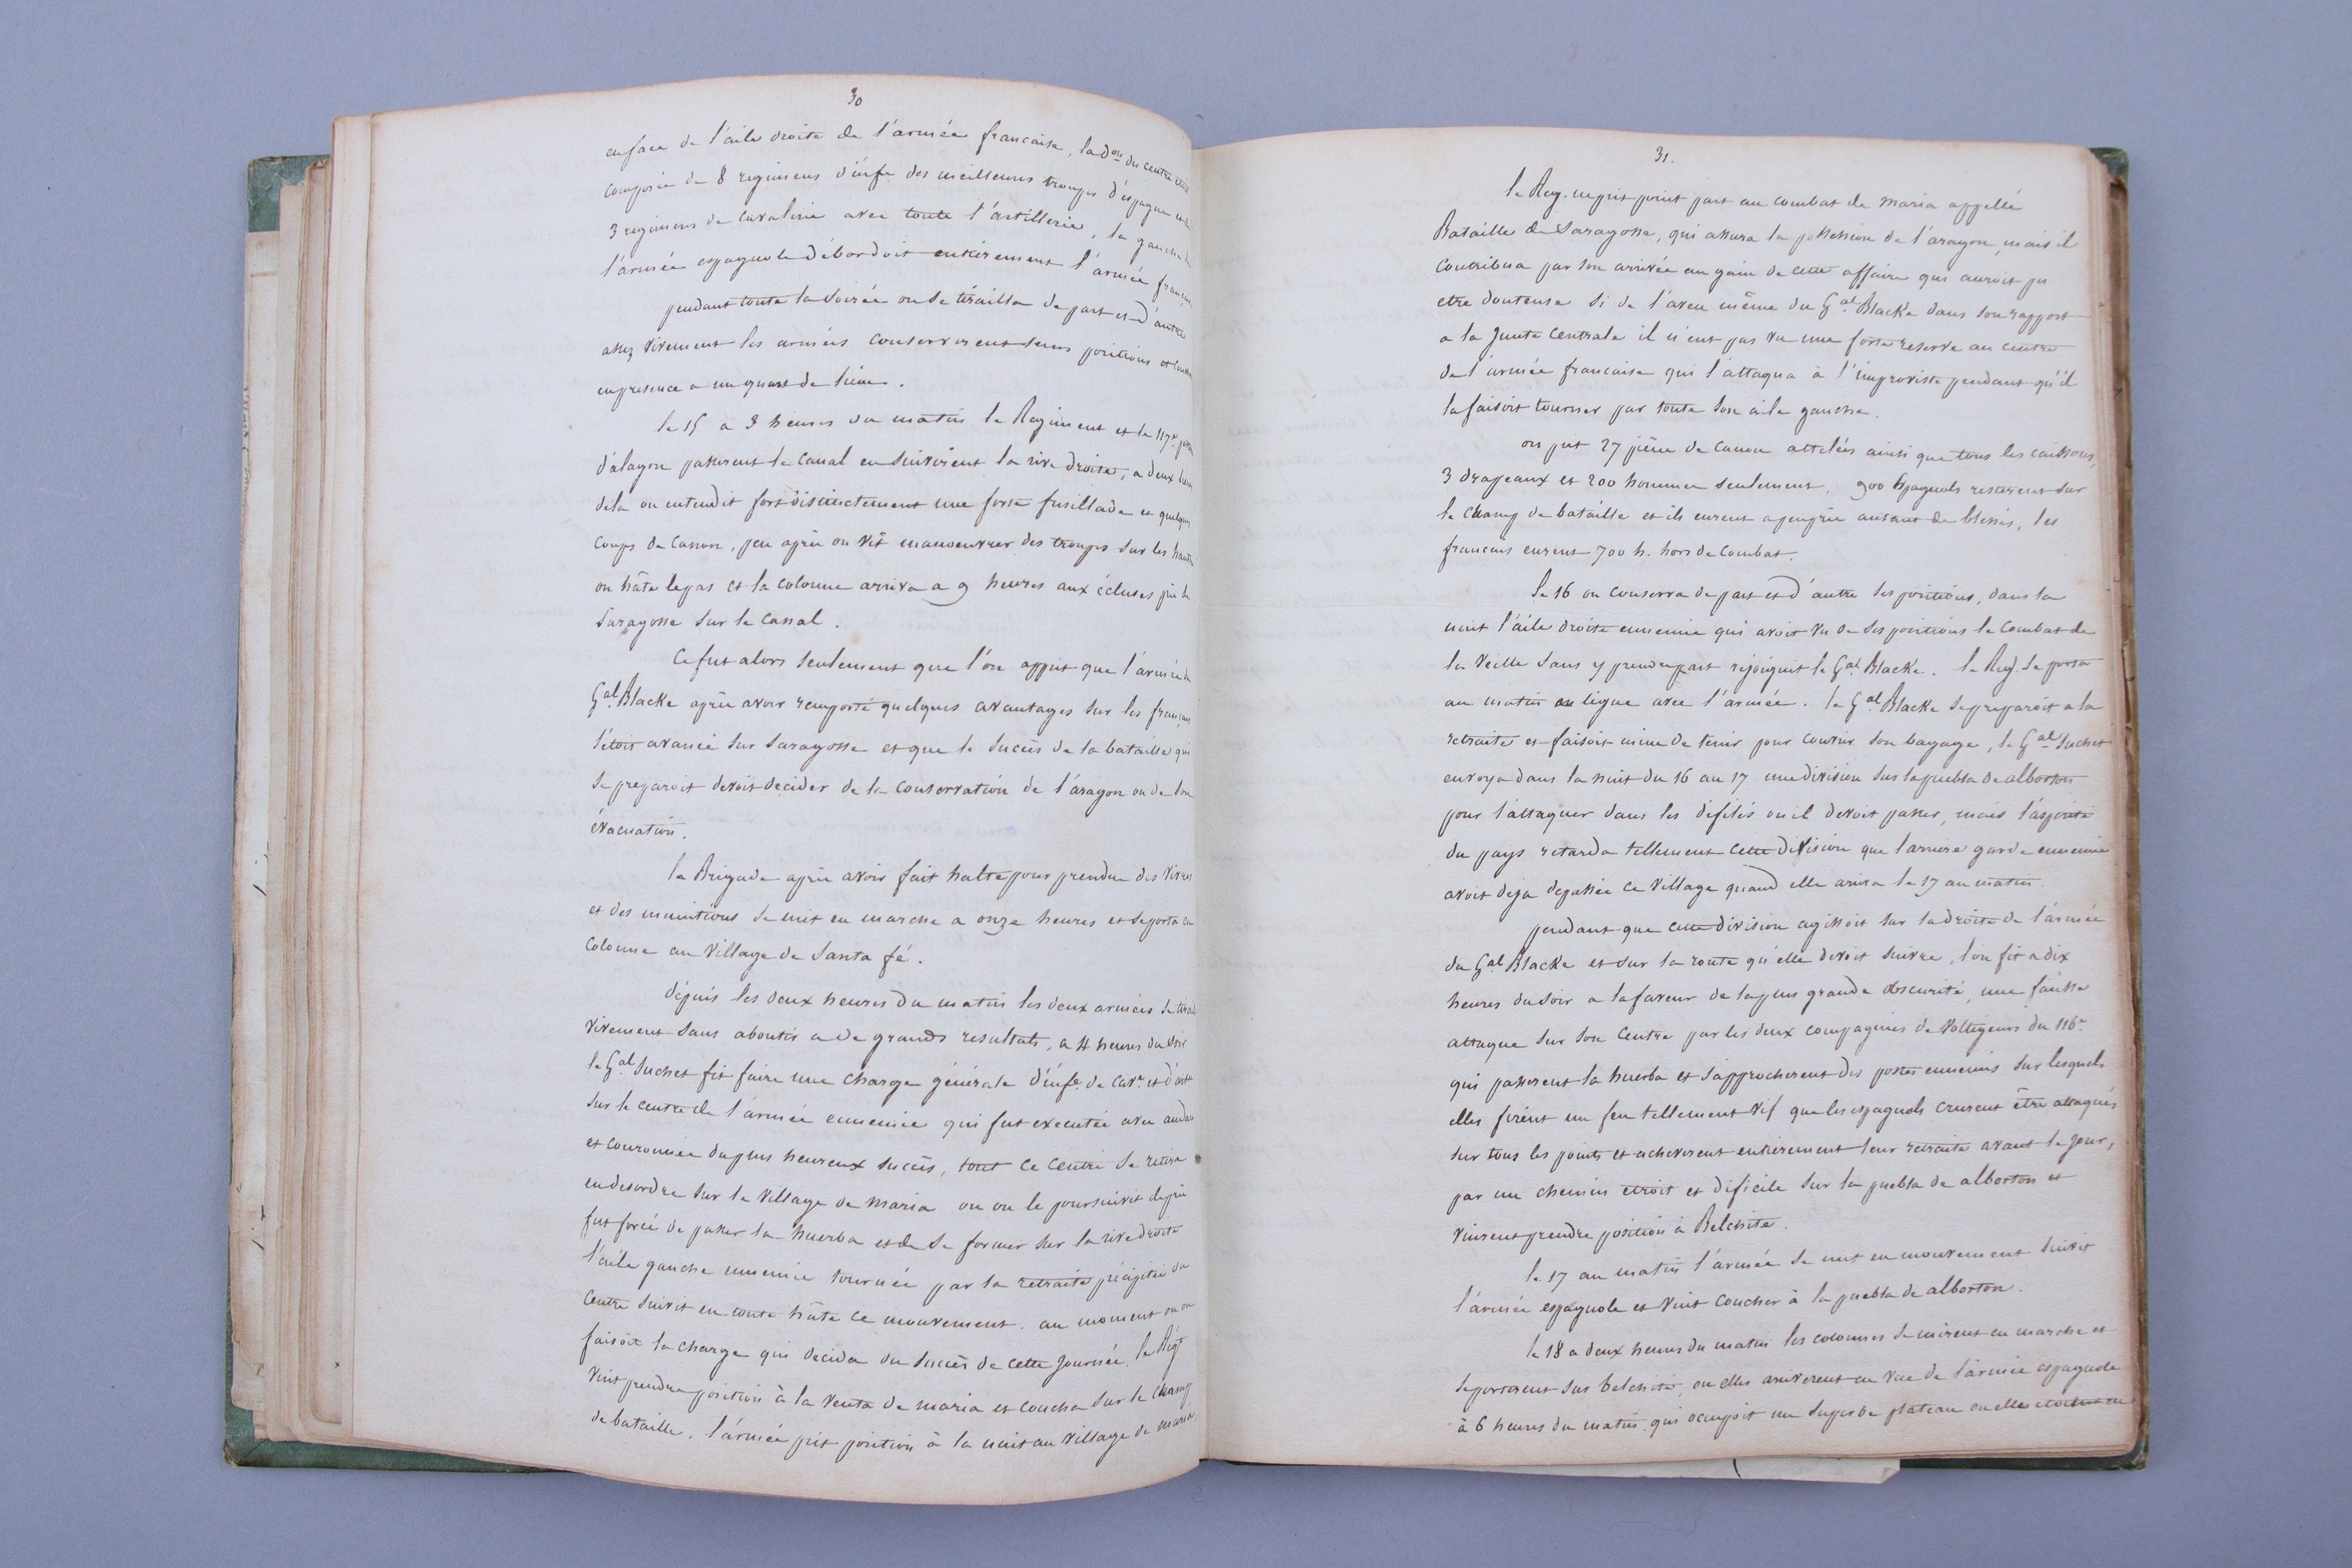 30
en face de l'aile droite de l'armée francaise, la d.on du centre étoit
composée de 8 regimens d'infe des meilleures troupes d'espagne et de
3 regimens de cavalerie avec toute l'artillerie, la gauche de
l'armée espagnole débordoit entièrement l'armée française
pendant toute la soirée on se tirailla de part et d'autre
assez vivement les armées conserverent leurs positions et
en presence a un quart de lieue.
le 15 a 3 heures du matin le Regiment et le 117e
d'alagon passerent le canal en suivirent la rive droite, a deux lieues
dela on entendit fort distinctement une forte fusillade et quelques
coups de canon, peu après on vit manoeuvrer des troupes sur les hauteurs
on hâte le pas et la colonne arriva a 9 heures aux écluses près de
Saragosse sur le canal.
Ce fut alors seulement que l'on apprit que l'armée du
Gal Blacke après avoir remporté quelques avantages sur les français
s'étoit avancé sur Saragosse et que le succès de la bataille qui
se preparoit devoit decider de la conservation de l'aragon ou de son
évacuation.
la Brigade après avoir fait halte pour prendre des vivres
et des munitions se mit en marche a onze heures et se porta en
colonne au village de Santa fé.
depuis les deux heures du matin les deux armées se
vivement sans aboutir a de grands resultats, a 4 heures du soir
le Gal Suchet fit faire une charge générale d'infe de cave et d'arte
sur le centre de l'armée ennemie qui fut executée avec
et couronnée du plus heureux succès, tout ce centre se retira
en desordre sur le village de Maria ou on le poursuivit
fut forcé de passer la huerba et de se former sur la rive droite
l'aile gauche ennemie tournée par la retraite précipitée du
centre suivit en toute hâte ce mouvement. au moment ou on
faisoit la charge qui decida du succès de cette journée, le Régt
vint prendre position à la Venta de maria et coucha sur le champ
de bataille. l'armée prit position à la nuit au village de maria
31.
le Reg. ne prit point part au combat de maria appellé
Bataille de Saragosse, qui assura la possession de l'aragon, mais il
contribua par son arrivée au gain de cette affaire qui auroit pu
etre douteuse si de l'aveu même du Gal Blacke dans son rapport
a la Junte Centrale il n'eut pas vu une forte reserve au centre
de l'armée francaise qui l'attaqua à l'improviste pendant qu'il
la faisoit tourner par toute son aile gauche.
on prit 27 pièce de canon attelées ainsi que tous les caissons,
3 drapeaux et 200 hommes seulement. 900 Espagnols resterent sur
le champ de bataille et ils eurent apeuprès autant de blessés, les
francais eurent 700 h. hors de combat.
le 16 on conserva de part et d'autre ses positions, dans la
nuit l'aile droite ennemie qui avoit vu de ses positions le combat de
la veille sans y prendre part rejoignit le Gal Blacke. le Reg. se porta
au matin en ligne avec l'armée. le Gal Blacke se preparoit a la
retraite et faisoit mine de tenir pour couvrir son bagage, le Gal Suchet
envoya dans la nuit du 16 au 17 une division sur la puebla de alborton
pour l'attaquer dans les défilés ou il devoit passer, mais l'aspérité
du pays retarda tellement cette division que l'arriere garde ennemie
avoit deja depassée ce village quand elle ariva le 17 au matin.
pendant que cette division agissoit sur la droite de l'armée
du Gal Blacke et sur la route qu'elle devoit suivre, l'on fit a dix
heures du soir a la faveur de la plus grande obscurité, une fausse
attaque sur son centre par les deux compagnies de Voltigeurs du 116e
qui passerent la huerba et s'approcherent des postes ennemis sur lesquels
elles firent un feu tellement vif que les espagnols crurent être attaqués
sur tous les points et acheverent entièrement leur retraite avant le jour,
par un chemin etroit et dificile sur la puebla de alborton et
vinrent prendre position à Belchite.
le 17 au matin l'armée se mit en mouvement suivit
l'armée espagnole et vint coucher à la puebla de alborton.
le 18 a deux heures du matin les colonnes se mirent en marche et
se porterent sur belchite, ou elles ariverent en vue de l'armée espagnole
à 6 heures du matin. qui occupoit un superbe plateau ou elle